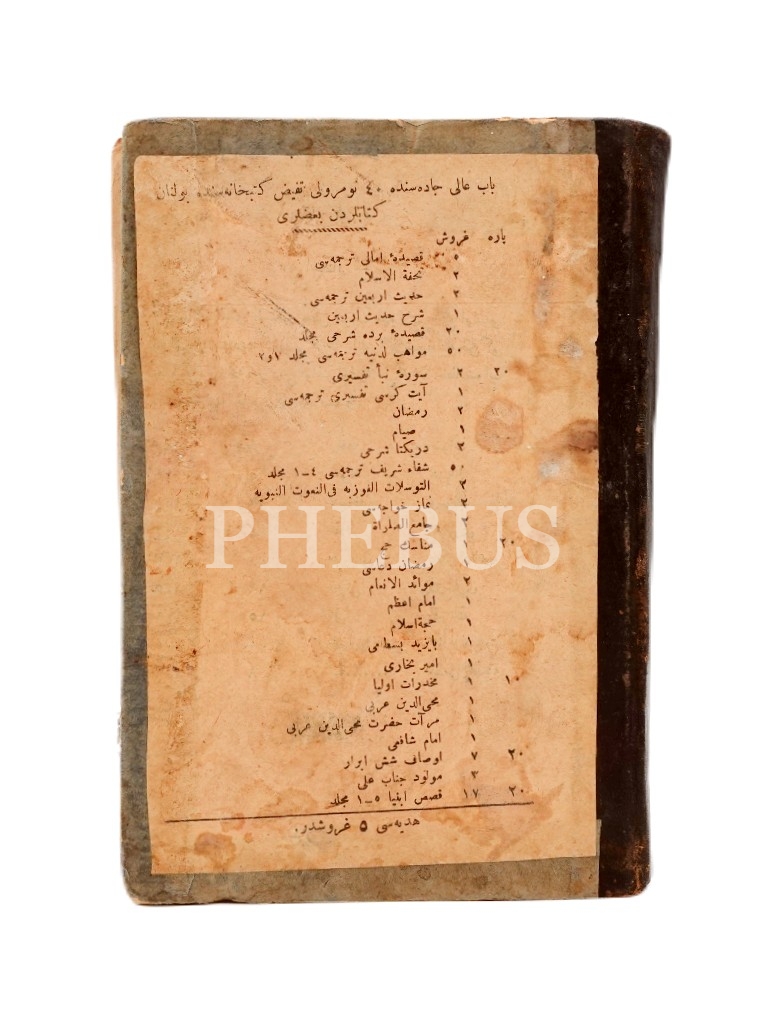 باب عالی جاده‌سنده ٤٠ نومرولی تفیض کتبخانه‌سنده بولنان
کتابلردن بعضلری
پاره غروش
٥ قصیدهٔ امالی ترجمه‌سی
٢ تحفة الاسلام
٢ حدیث اربعین ترجمه‌سی
١ شرح حدیث اربعین
٢٠ قصیدهٔ برده شرحی مجلد
٥٠ مواهب لدنیه ترجمه‌سی مجلد ١و٢
٢٠ ٢ سورهٔ نبأ تفسیری
١ آیت کرسی تفسیری ترجمه‌سی
٢ رمضان
١ صیام
٣ دریکتا شرحی
٥٠ شفاء شریف ترجمه‌سی ٤-١ مجلد
٣ التوسلات الفوزیه فی‌النعوت النبویه
٢ نماز خواجه‌سی
٢
٢٠ ١ مناسك حج
١ رمضان
٢ موائد الانعام
١ امام اعظم
١ حجةاسلام
١ بایزید بسطامی
١ امیر بخاری
١٠ ١ مخدرات اولیا
١ محی‌الدین عربی
١ مرآت حضرت محی‌الدین عربی
١ امام شافعی
٢٠ ٧ اوصاف شش ابرار
٣ مولود جناب علی
٢٠ ١٧ قصص انبیا ٥-١ مجلد
هدیه‌سی ٥ غروشدر.
PHEBUS